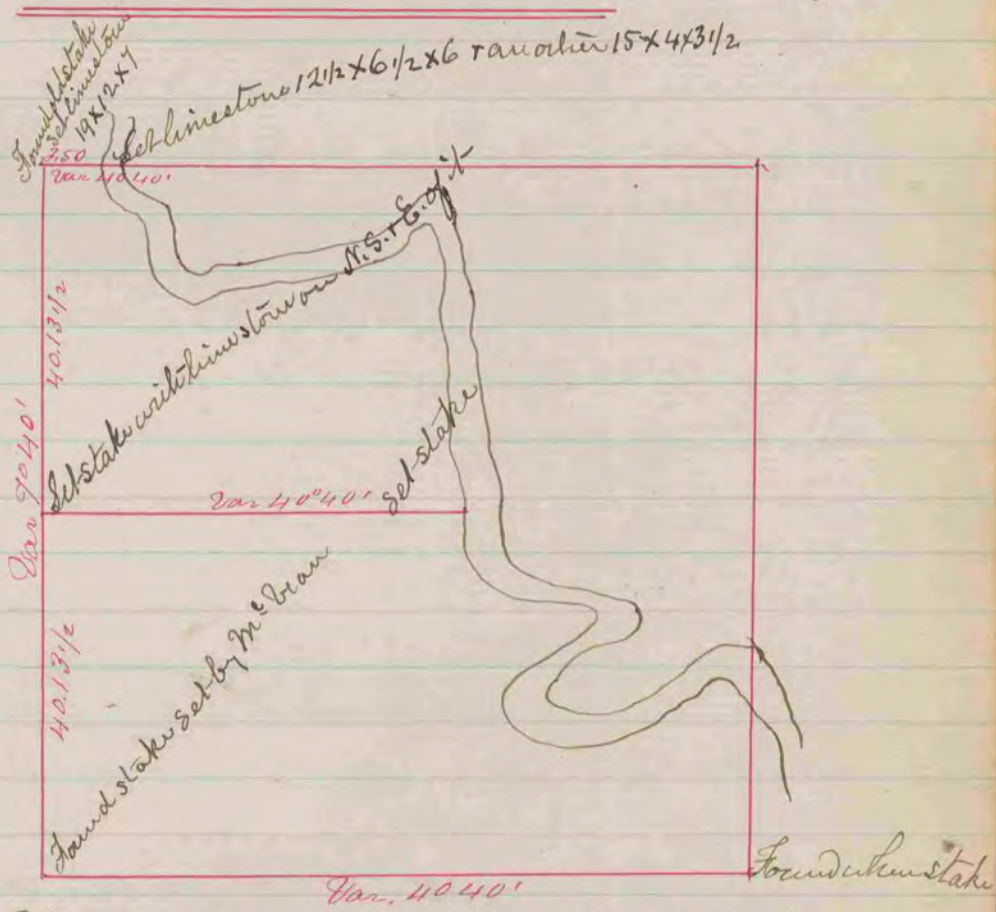 Found old stake
set limestone
19 X 12 X 7
Set limestone 12 1/2 X 6 1/2 X 6 + another 15 X 4 X 3 1/2
3.50
Var 4° 40'
40.13 1/2
Set stake with limestone on N. S. + E. of it
Var 7° 40'
Var 40° 40'
set stake
40.13 1/2
Found stake set by Mc Bean
Found stake
Var. 4° 40'